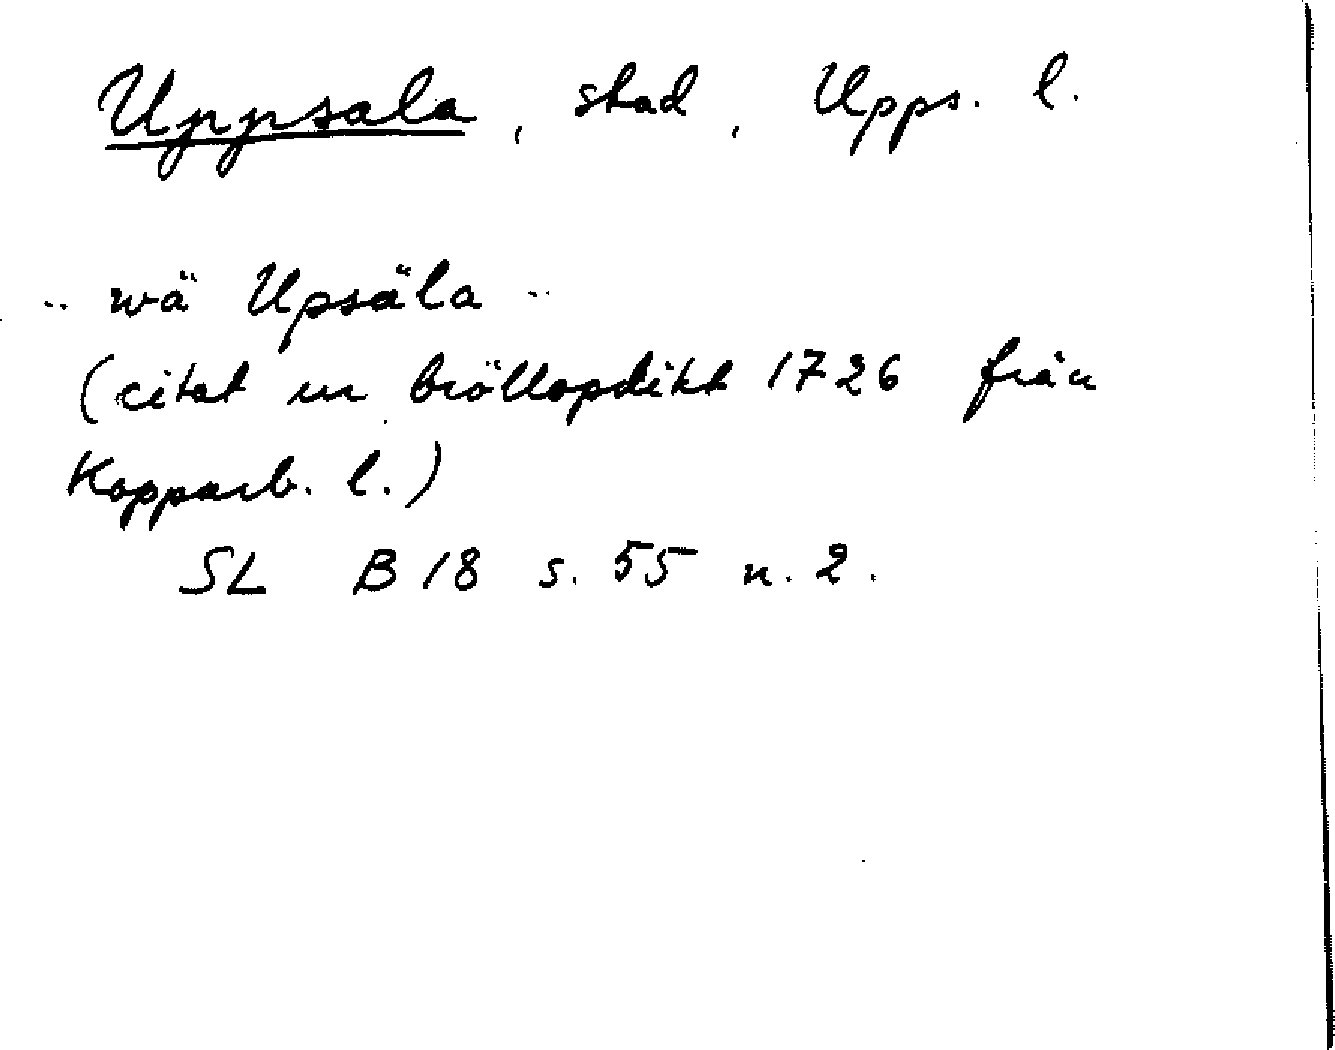 Uppsala, stad, Upps. l.
.. wä Upsäla ..
(citat ur bröllopdikt 1726 från
Kopparb. l.)
SL B 18 s. 55 n. 2.